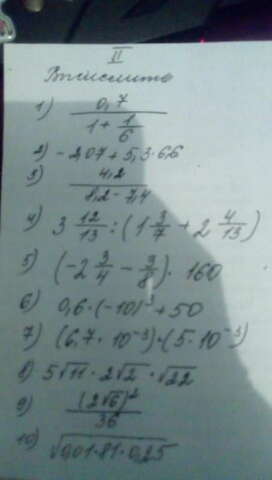 II
Вычислить
1) 0,7 / (1 + 1/6)
2) -2,07 + 5,3·6,6
3) 4,2 / (8,2 - 7,4)
4) 3 12/13 : (1 3/7 + 2 4/13)
5) (-2 3/4 - 3/8) · 160
6) 0,6·(-10)³ + 50
7) (6,7 · 10⁻³)·(5·10⁻³)
8) 5√11 · 2√2 · √22
9) (2√6)² / 36
10) √0,01·81·0,25